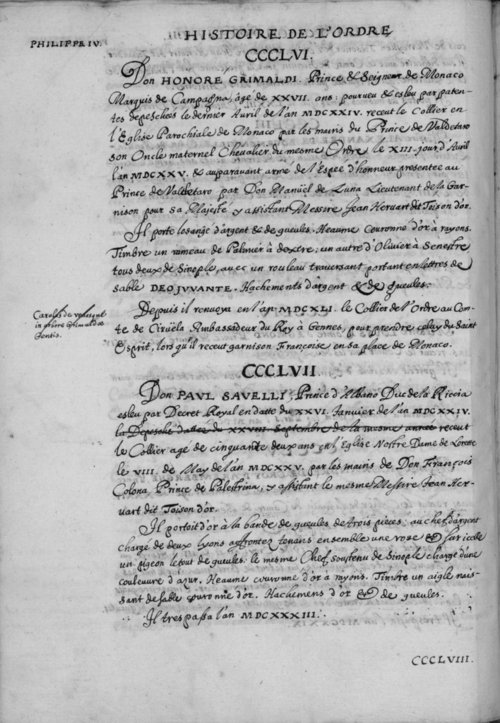 HISTOIRE DE L'ORDRE
PHILIPPE IV.
CCCLVI.
Don HONORE GRIMALDI. Prince & Seigneur de Monaco
Marquis de Campagna, âgé de XXVII. ans, pourveu & esleu par paten-
tes depeschées le dernier Avril de l'an MDCXXIV. receut le Collier en
l'Eglise Parochiale de Monaco par les mains du Prince de Valdetaro
son Oncle maternel Chevalier du mesme Ordre le XIII. jour d'Avril
l'an MDCXXV. & auparavant armé de l'Espée d'honneur presentee au
Prince de Valdetaro par Don Manuel de Luna Lieutenant de la Gar-
nison pour Sa Majesté y assistant Messire Jean Hervart dit Toison d'or.
Il porte losangé d'argent & de gueules. Heaume Couronné d'or à rayons.
Timbre un rameau de Palmier à dextre; un autre d'Olivier à Senestre
tous deux de Sinople, avec un rouleau traversant portant en lettres de
sable DEO JUVANTE. Hachements d'argent & de gueules.
Depuis il renvoya en l'an MDCXLI. le Collier de l'Ordre au Com-
te de Ciruela Ambassadeur du Roy à Gennes, pour prendre celuy du Saint
Esprit, lors qu'il receut garnison Françoise en sa place de Monaco.
CCCLVII
Don PAUL SAVELLI, Prince d'Albano Duc de la Riccia
esleu par Decret Royal en datte du XXVI. Janvier de l'an MDCXXIV.
la Depesche dattée du XXVIII Septembre de la mesme année receut
le Collier age de cinquante deux ans en l'Eglise Nostre Dame de Lorette
le VIII. de May de l'an MDCXXV. par les mains de Don François
Colona Prince de Palestrina, y assistant le mesme Messire Jean Her-
vart dit Toison d'or.
Il portoit d'or à la bande de gueules de trois pieces, au chef d'argent
chargé de deux Lyons affrontez tenans ensemble une rose & sur icelle
un pigeon le tout de gueules. le mesme Chef soustenu de Sinople chargé d'une
couleuvre d'azur. Heaume couronné d'or à rayons. Timbre un aigle nais-
sant de sable couronné d'or. Hachemens d'or & de gueules.
Il trespassa l'an MDCXXXIII.
CCCLVIII.